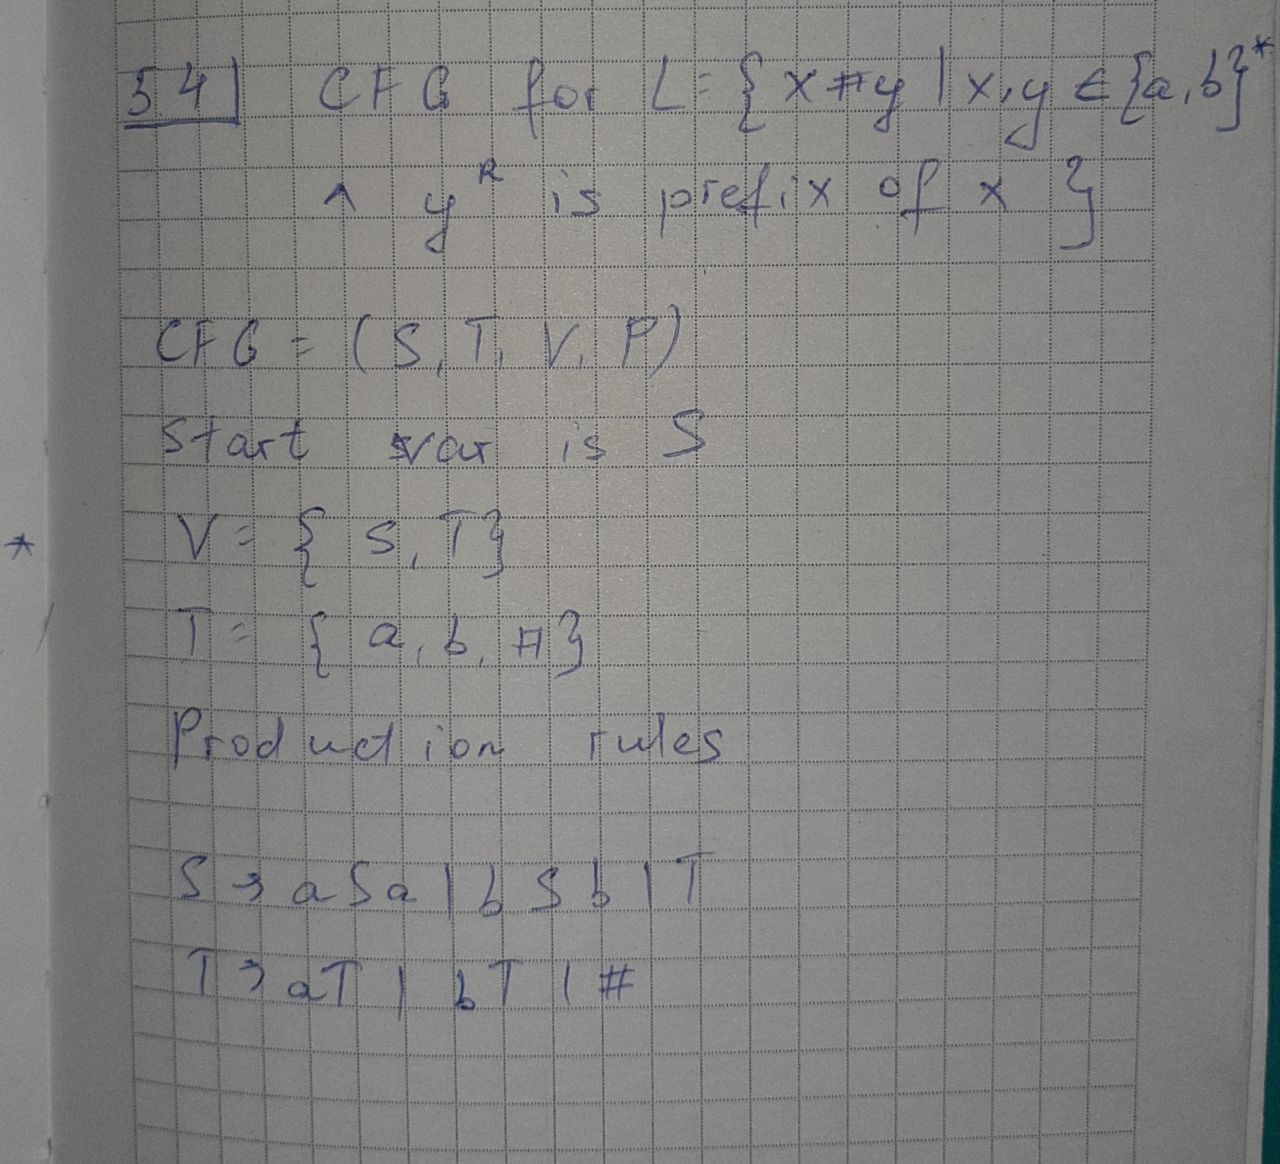 5.4 CFG for L = { x#y | x,y ∈ {a,b}*
∧ y^R is prefix of x }
CFG = (S, T, V, P)
Start var is S
* V = { S, T }
T = { a, b, # }
Production rules
S → aSa | bSb | T
T → aT | bT | #